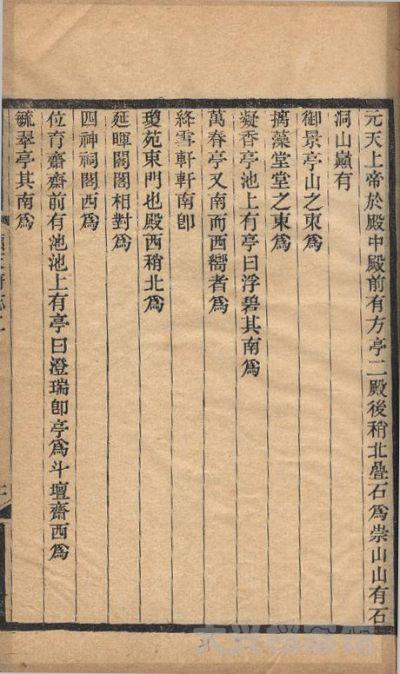 元天上帝於殿中殿前有方亭二殿後稍北疊石爲崇山山有石
洞山巔有
御景亭山之東爲
摛藻堂堂之東爲
凝香亭池上有亭曰浮碧其南爲
萬春亭又南而西嚮者爲
絳雪軒軒南卽
瓊苑東門也殿西稍北爲
延暉閣閣相對爲
四神祠閣西爲
位育齋齋前有池池上有亭曰澄瑞卽亭爲斗壇齋西爲
毓翠亭其南爲